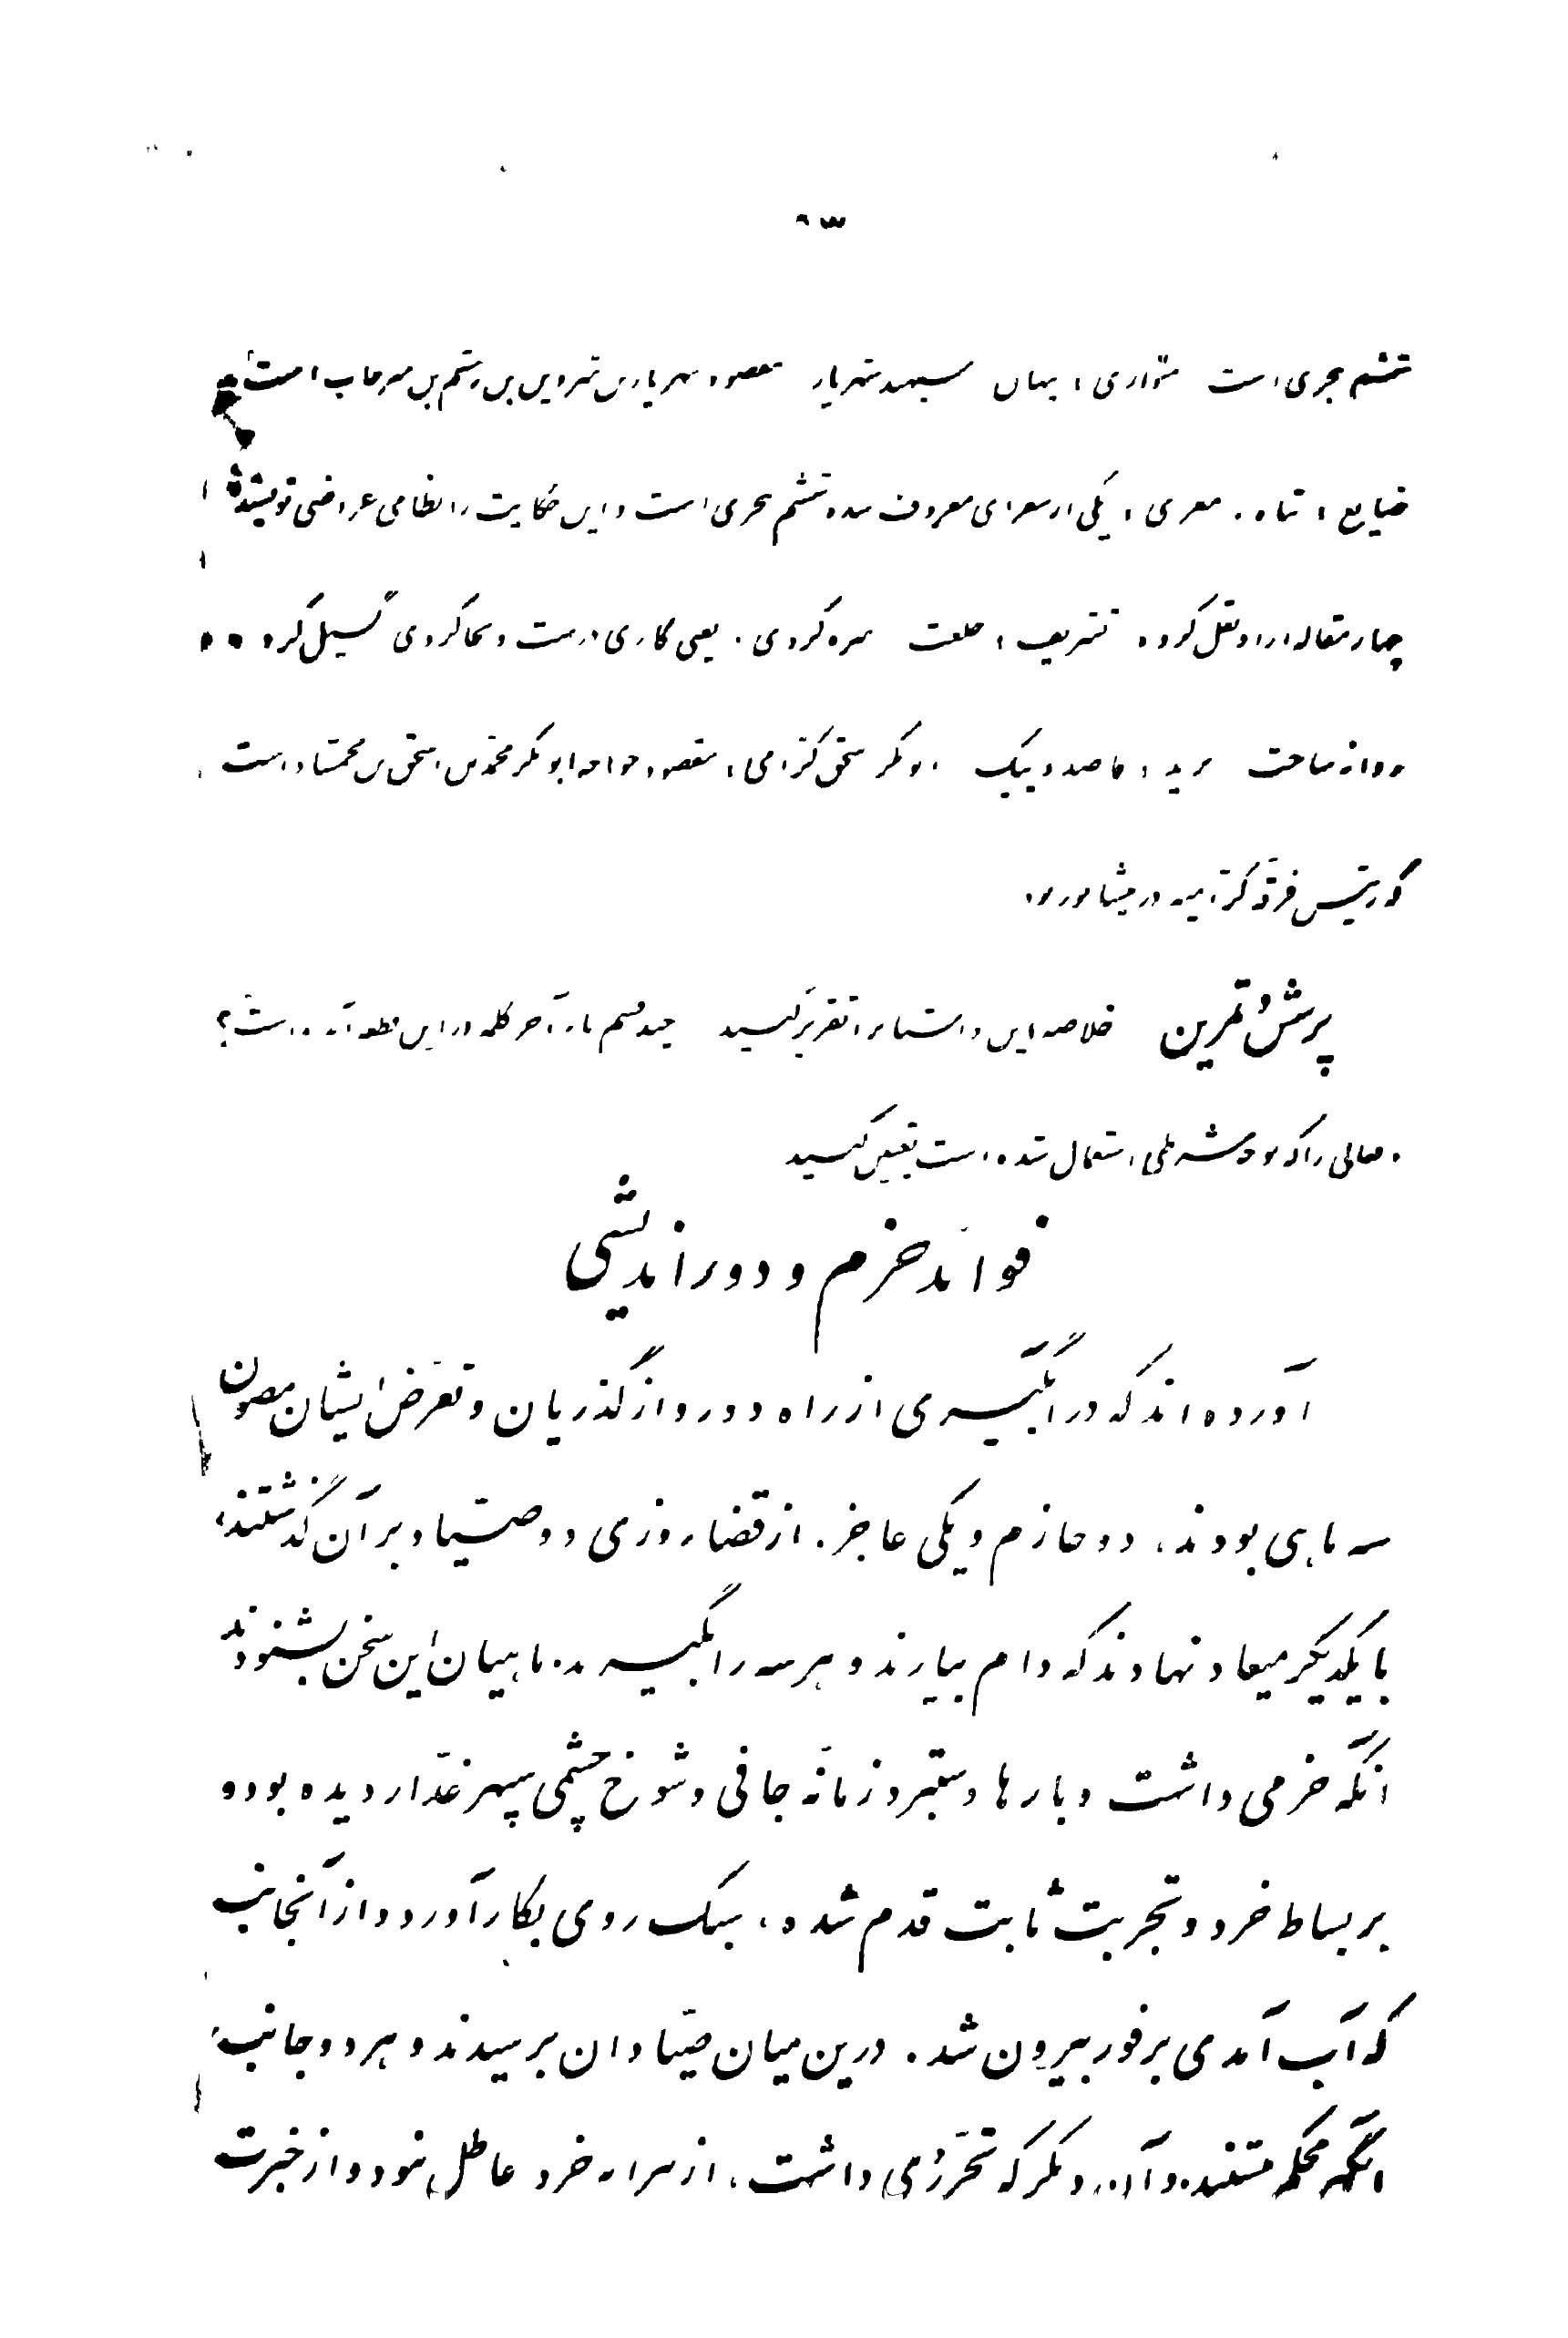 ششم هجری است متواری : پنهان سپهبد شهریار مقصود شهریار بن شروین بن رستم بن سرخاب است
ضایع : تباه . معزی : یکی از شعرای معروف سده ششم هجری است و این حکایت را نظامی عروضی نویسنده
چهار مقاله از او نقل کرده تشریف : خلعت سره کردی . یعنی کاری درست و بجا کردی گسیل کرد
روانه ساخت برید : قاصد و پیک ابوبکر اسحق کرامی : مقصود خواجه ابوبکر محمد بن اسحق بن محمشاد است
که رئیس فرقه کرامیه در نیشابور بود
پرسش و تمرین خلاصه این داستان را تقریر کنید چند قسم یاء آخر کلمه در این قطعه آمده است؟
افعالی را که بوجه شرطی استعمال شده است تعیین کنید
فوائد حزم و دوراندیشی
آورده اند که در آبگیری از راه دور و از گذریان و تعرض ایشان مصون
سه ماهی بودند، دو حازم و یکی عاجز. از قضا روزی دو صیاد بر آن گذشتند
با یکدیگر میعاد نهادند که دام بیارند و هر سه را بگیرند. ماهیان این سخن بشنودند
آنکه حزمی داشت و بارها دستبرد زمانه جافی و شوخ چشمی سپهر غدار دیده بود و
بر بساط خرد و تجربت ثابت قدم شده، سبک روی بکار آورد و از آنجانب
که آب آمدی بر فور بیرون شد. درین میان صیادان برسیدند و هر دو جانب
آبگیر محکم ببستند. و آن دگر که تحرزی داشت، از پیرایه خرد عاطل نبود و از خبرت